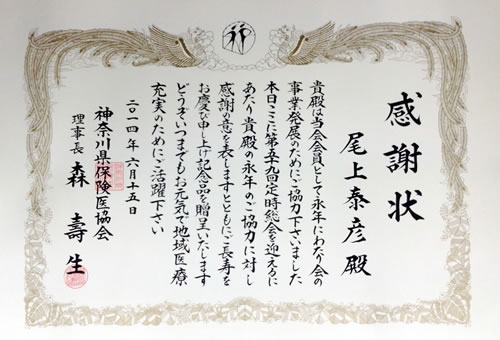 感謝状
尾上泰彦殿
貴殿は当会会員として永年にわたり会の
事業発展のためにご協力下さいました
本日ここに第五十九回定時総会を迎えるに
あたり貴殿の永年のご協力に対し
感謝の意を表しますとともにご長寿を
お慶び申し上げ記念品を贈呈いたします
どうぞいつまでもお元気で地域医療
充実のためにご活躍下さい
二〇一四年六月十五日
神奈川県保険医協会
理事長 森壽生